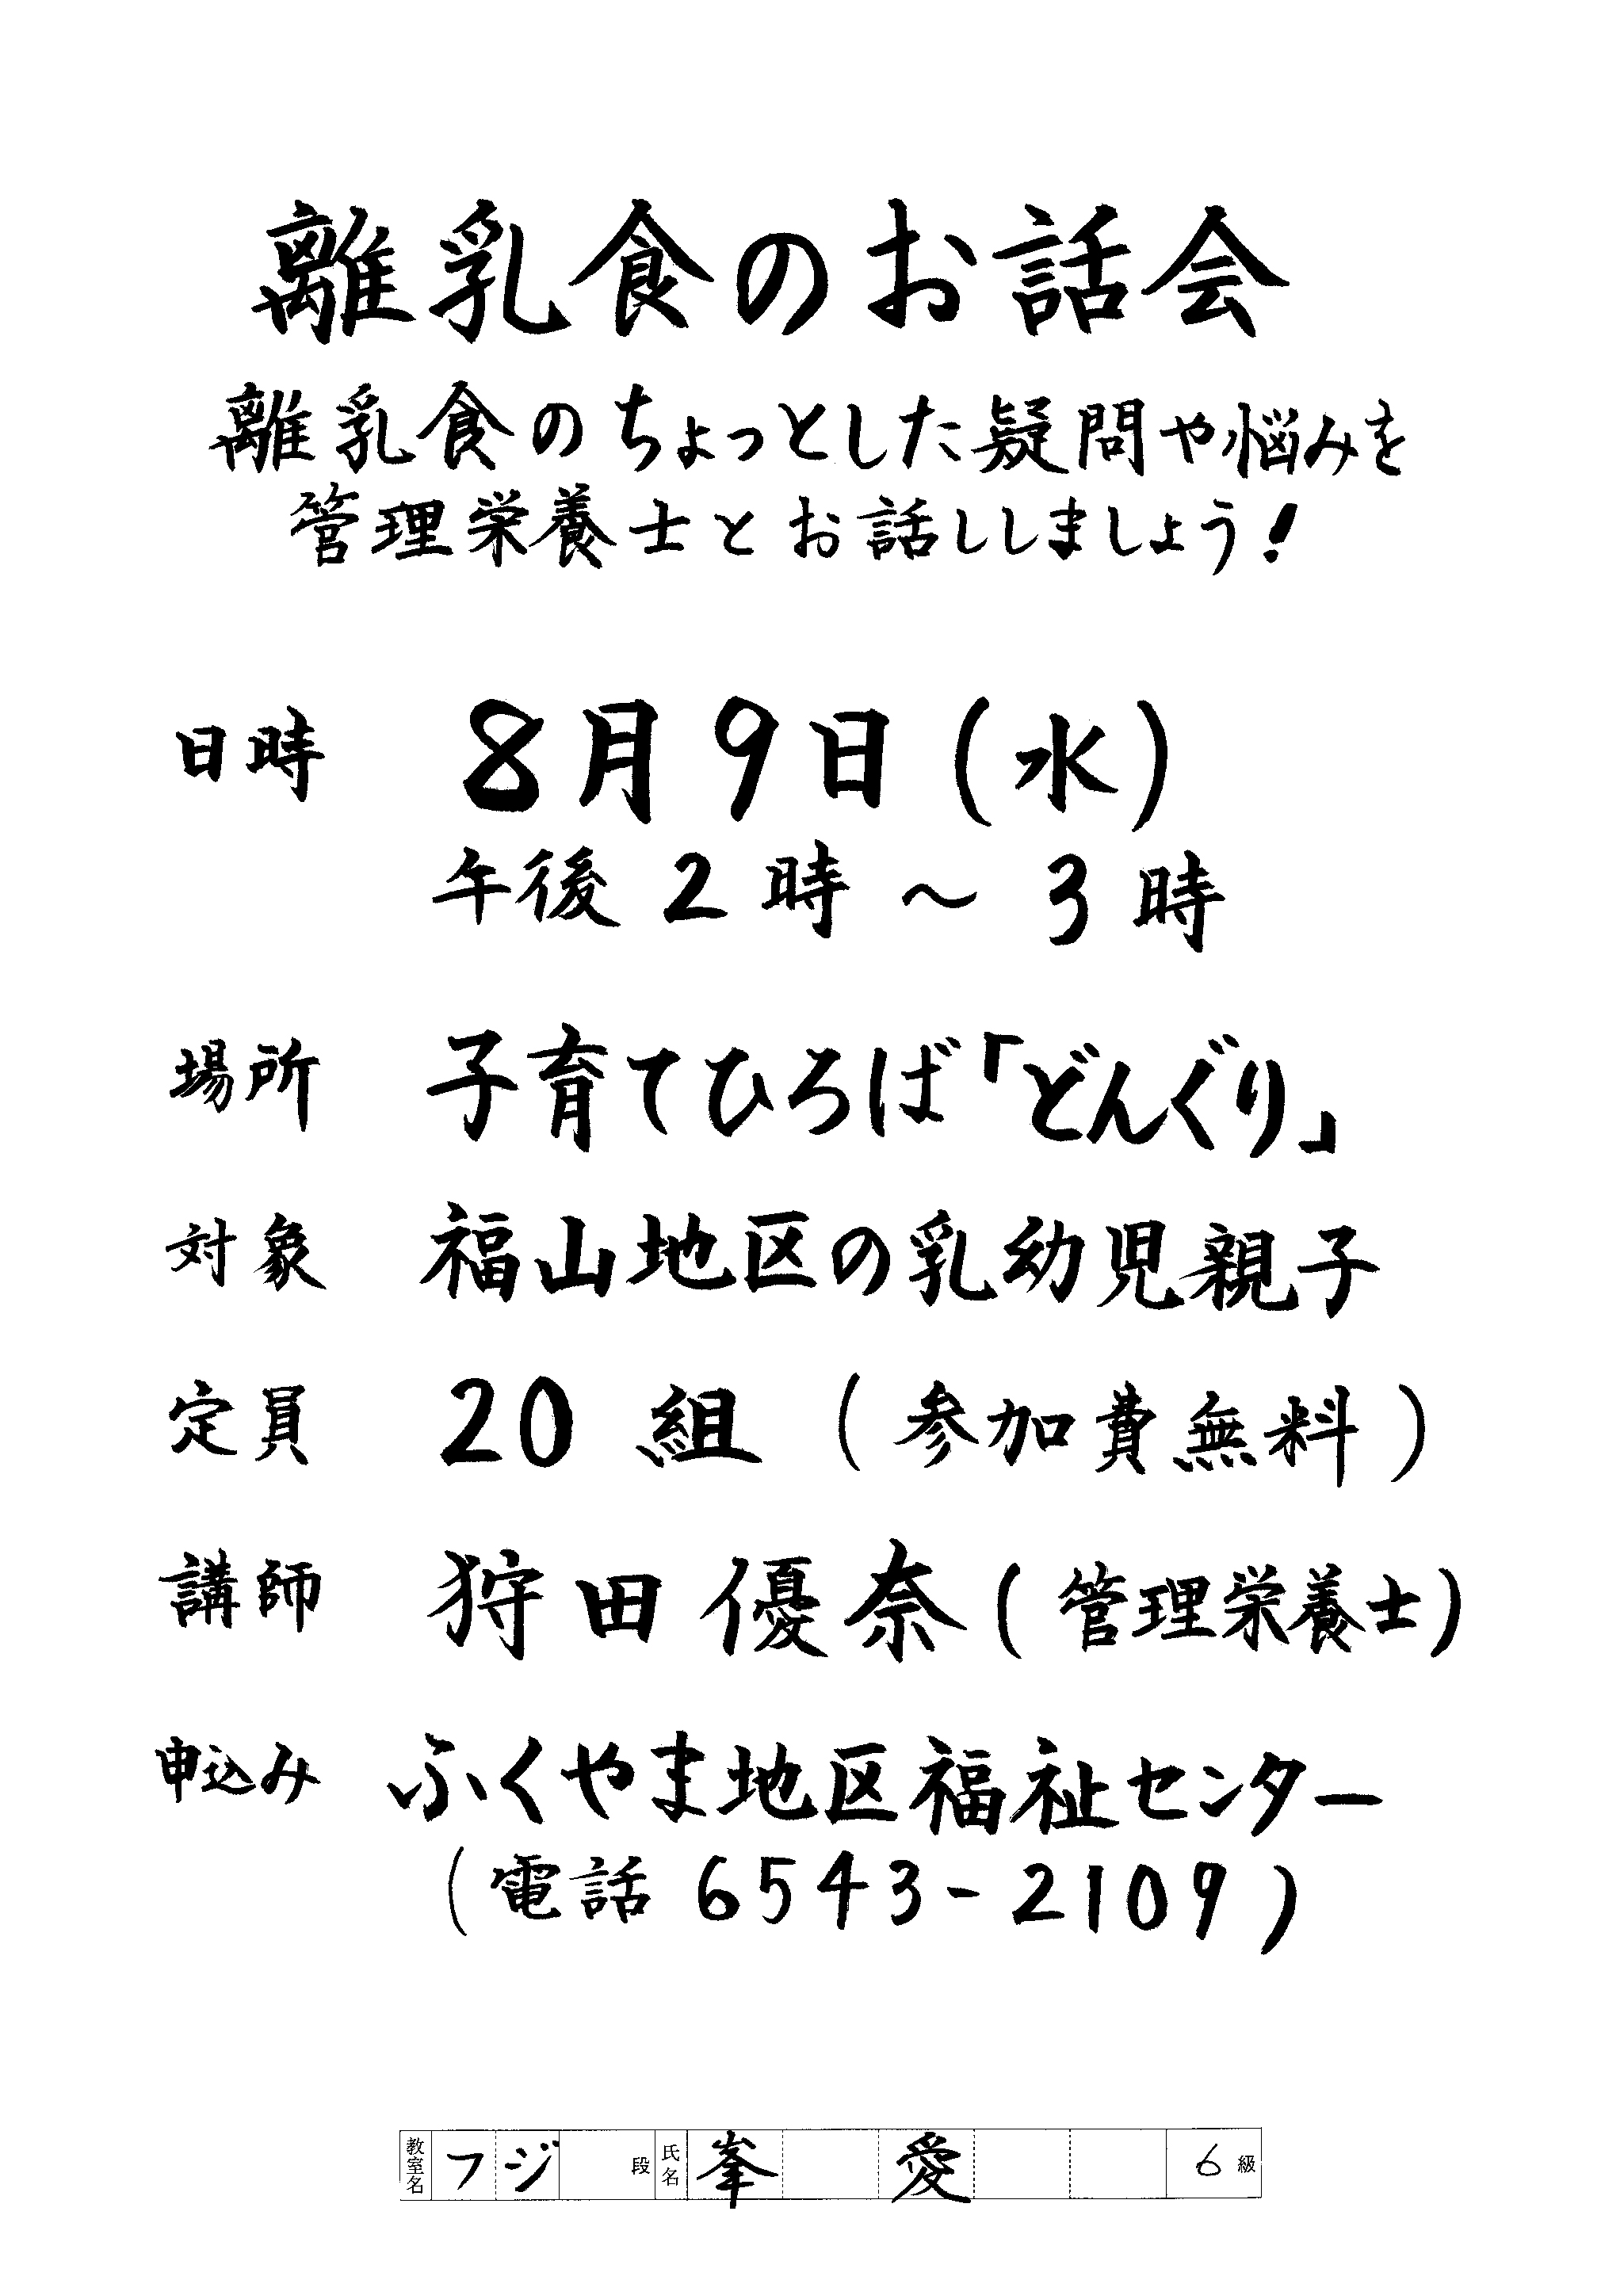 離乳食のお話会
離乳食のちょっとした疑問や悩みを
管理栄養士とお話ししましょう!
日時 8月9日(水)
午後2時～3時
場所 子育てひろば「どんぐり」
対象 福山地区の乳幼児親子
定員 20組(参加費無料)
講師 狩田優奈(管理栄養士)
申込み ふくやま地区福祉センター
(電話 6543-2109)
教室名 フジ 段 氏名 峯 愛 6級